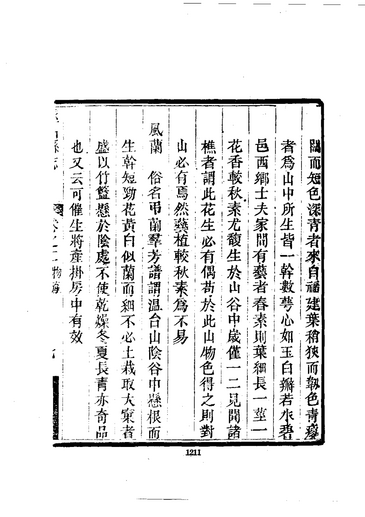 闊而短色深青者來自福建葉稍狹而韌色青瘦
者爲山中所生皆一幹數萼心如玉白瓣若水碧
邑西鄉士夫家間有藝者春素則葉細長一莖一
花香較秋素尤馥生於山谷中歲僅一二見聞諸
樵者謂此花生必有偶茍於此山物色得之則對
山必有焉然藝植較秋素爲不易
風蘭 俗名弔蘭羣芳譜謂溫台山陰谷中懸根而
生幹短勁花黃白似蘭而細不必土栽取大窠者
盛以竹籃懸於陰處不使乾燥冬夏長青亦奇品
也又云可催生將產掛房中有效
物產
1211